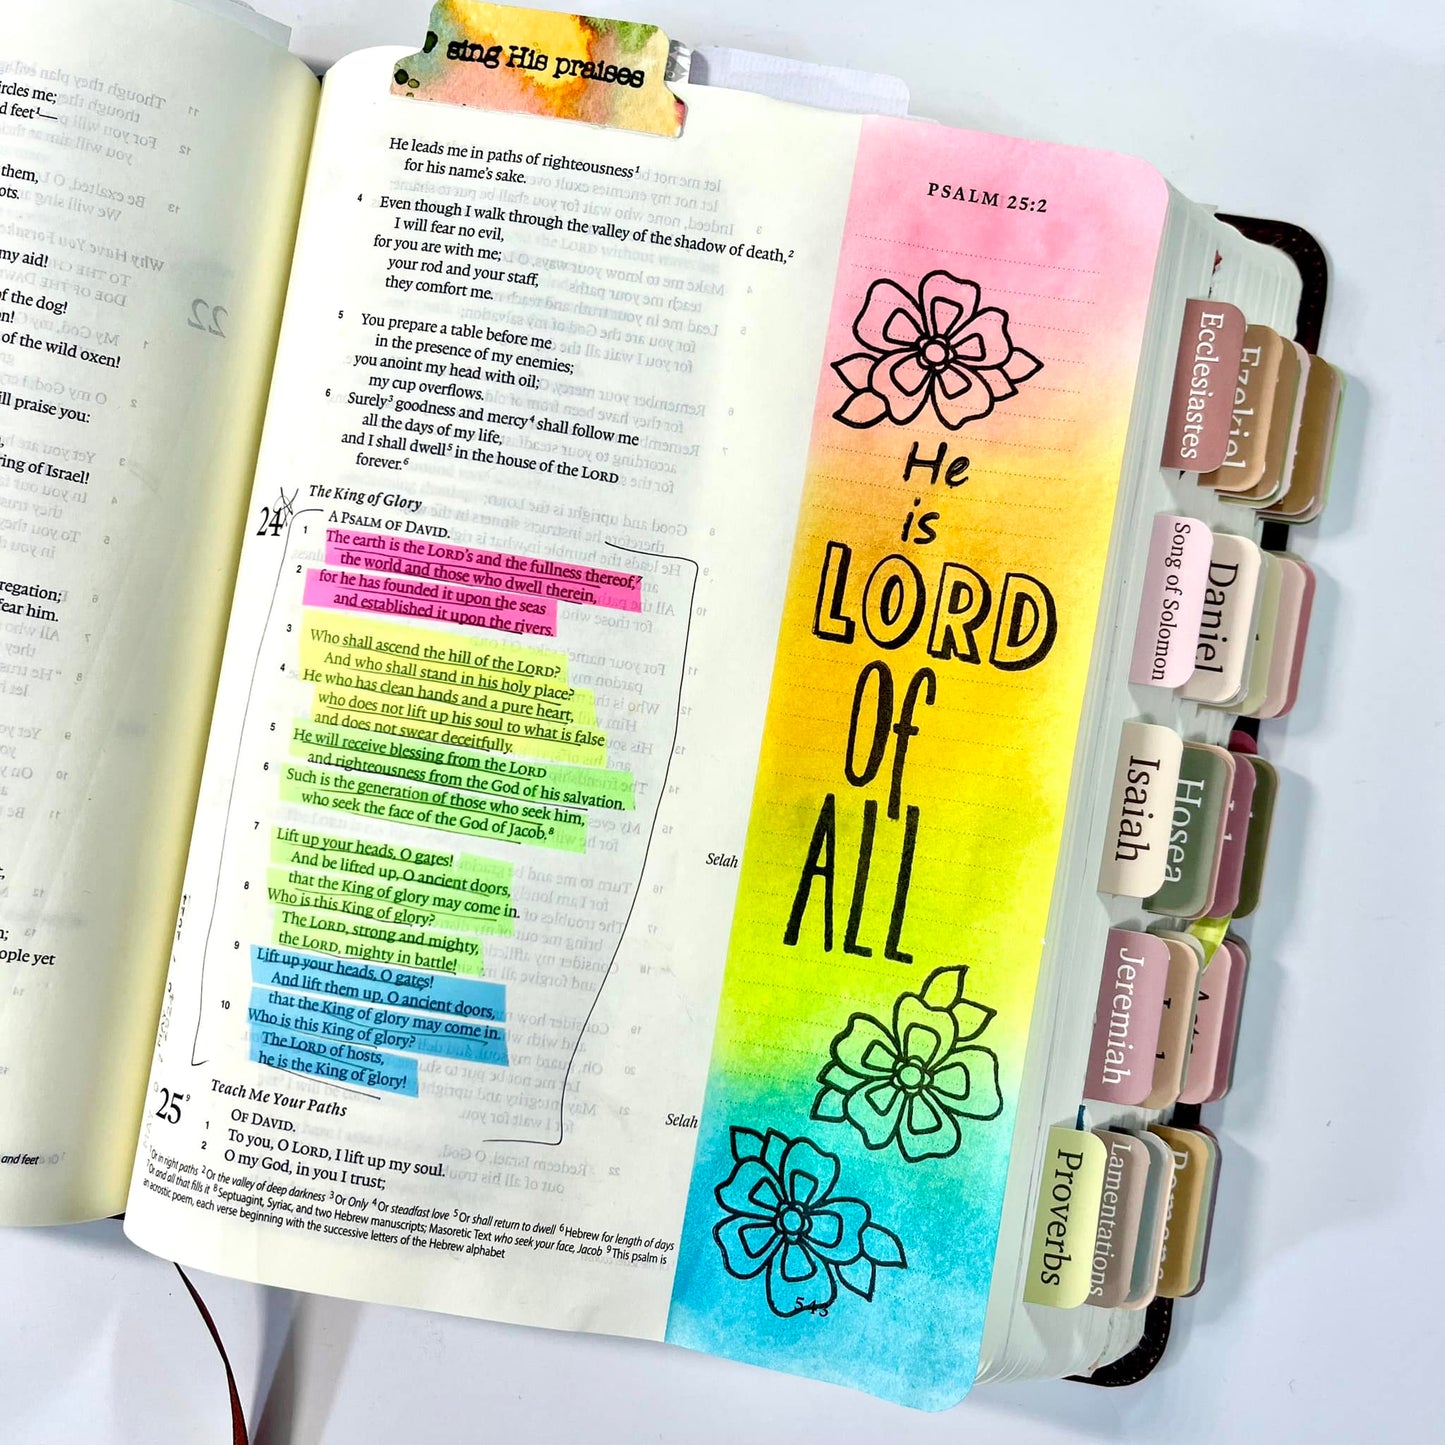 sing His praises
ircles me;
d feet¹—
them,
ots.
my aid!
f the dog!
n!
of the wild oxen!
ll praise you:
ring of Israel!
regation;
fear him.
ople yet
and feet
He leads me in paths of righteousness¹
for his name's sake.
4 Even though I walk through the valley of the shadow of death,²
I will fear no evil,
for you are with me;
your rod and your staff,
they comfort me.
5 You prepare a table before me
in the presence of my enemies;
you anoint my head with oil;
my cup overflows.
6 Surely³ goodness and mercy⁴ shall follow me
all the days of my life,
and I shall dwell⁵ in the house of the LORD
forever.⁶
The King of Glory
24 A PSALM OF DAVID.
1 The earth is the LORD's and the fullness thereof,⁷
the world and those who dwell therein,
2 for he has founded it upon the seas
and established it upon the rivers.
3 Who shall ascend the hill of the LORD?
And who shall stand in his holy place?
4 He who has clean hands and a pure heart,
who does not lift up his soul to what is false
and does not swear deceitfully.
5 He will receive blessing from the LORD
and righteousness from the God of his salvation.
6 Such is the generation of those who seek him,
who seek the face of the God of Jacob.⁸
Selah
7 Lift up your heads, O gates!
And be lifted up, O ancient doors,
that the King of glory may come in.
8 Who is this King of glory?
The LORD, strong and mighty,
the LORD, mighty in battle!
9 Lift up your heads, O gates!
And lift them up, O ancient doors,
that the King of glory may come in.
10 Who is this King of glory?
The LORD of hosts,
he is the King of glory!
Selah
Teach Me Your Paths
25⁹ OF DAVID.
1 To you, O LORD, I lift up my soul.
2 O my God, in you I trust;
¹Or in right paths ²Or the valley of deep darkness ³Or Only ⁴Or steadfast love ⁵Or shall return to dwell ⁶Hebrew for length of days
⁷Or and all that fills it ⁸Septuagint, Syriac, and two Hebrew manuscripts; Masoretic Text who seek your face, Jacob ⁹This psalm is
an acrostic poem, each verse beginning with the successive letters of the Hebrew alphabet
PSALM 25:2
He
is
LORD
Of
ALL
543
Ecclesiastes
Ezekiel
Song of Solomon
Daniel
Isaiah
Hosea
Jeremiah
Proverbs
Lamentations
Romans